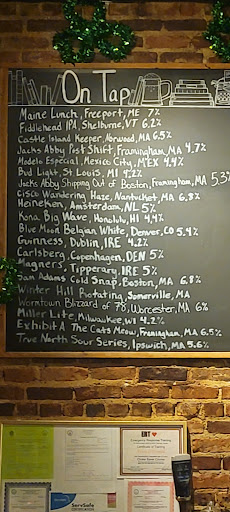 On Tap
Maine Lunch, Freeport, ME 7%
Fiddlehead IPA, Shelburne, VT 6.2%
Castle Island Keeper, Norwood, MA 6.5%
Jacks Abby Post Shift, Framingham, MA 4.7%
Modelo Especial, Mexico City, MEX 4.4%
Bud Light, St. Louis, MI 4.2%
Jacks Abby Shipping Out of Boston, Framingham, MA 5.3%
Cisco Wandering Haze, Nantucket, MA 6.8%
Heineken, Amsterdam, NL 5%
Kona Big Wave, Honolulu, HI 4.4%
Blue Moon Belgian White, Denver, CO 5.4%
Guinness, Dublin, IRE 4.2%
Carlsberg, Copenhagen, DEN 5%
Magners, Tipperary, IRE 5%
Sam Adams Cold Snap, Boston, MA 6.8%
Winter Hill Rotating, Somerville, MA
Wormtown Blizzard of 78, Worcester, MA 6%
Miller Lite, Milwaukee, WI 4.2%
Exhibit A The Cats Meow, Framingham, MA 6.5%
True North Sour Series, Ipswich, MA 5.6%
ServSafe